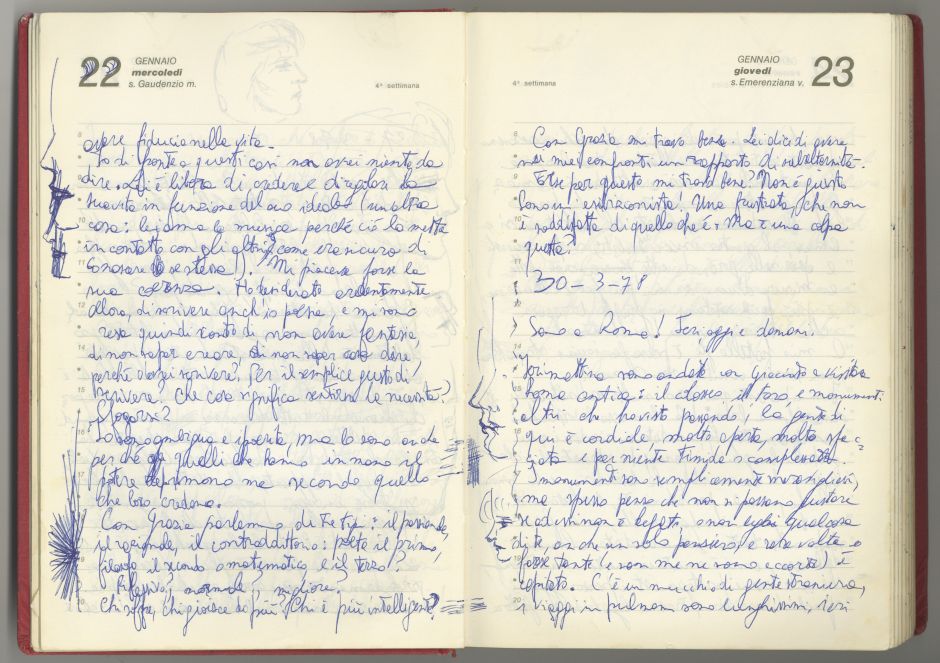 22
GENNAIO
mercoledì
s. Gaudenzio m.
4ª settimana
avere fiducia nella vita.
Io di fronte a questi casi non avrei niente da
dire. Lei è libera di credere e di regolarsi la
sua vita in funzione del suo ideale (un'altra
cosa: lei ama la musica perché ciò la mette
in contatto con gli altri, come era sicura di
conoscere se stessa). Mi piaceva forse la
sua. Ho desiderato ardentemente
allora, di scrivere anch'io poesie, e mi sono
resa quindi conto di non avere fantasia,
di non saper creare, di non saper cosa dire,
perché dovrei scrivere? Per il semplice gusto di
scrivere? Che cosa significa sentirne la necessità?
Sfogarsi?
Io sono ambigua e ipocrita, ma lo sono anche
perché quelli che hanno in mano il
potere deprimono me secondo quello
che loro credono.
Con Grazia parlammo di tre tipi: il passionale,
il razionale, il contraddittorio: poeta il primo,
filosofo il secondo o matematico e il terzo?
normale, migliore?
Chi soffre, chi gioisce di più? Chi è più intelligente?
GENNAIO
giovedì
s. Emerenziana v.
23
4ª settimana
Con Grazia mi trovo bene. Lei dice di avere
nei miei confronti un rapporto di subalternità.
Forse per questo mi trovo bene? Non è giusto.
Sono un'esibizionista! Una frustrata, che non
è soddisfatta di quello che è. Ma è una colpa
questa?
30-3-78
Sono a Roma! Ieri, oggi e domani.
Ieri mattina sono andata con Giacinto a visitare
Roma antica: il colosseo, il foro e monumenti
altri che ho visto passando; la gente di
qui è cordiale, molto aperta, molto
e per niente timida o complessata.
I monumenti sono semplicemente meravigliosi,
ma spesso penso che non si possono gustare
se ad essi non è legato, o non leghi qualcosa
di te, anche un solo pensiero; e certe volte o
forse tante (e non me ne sono accorta) è
capitato. C'è un mucchio di gente straniera,
i viaggi in pullman sono lunghissimi, ieri